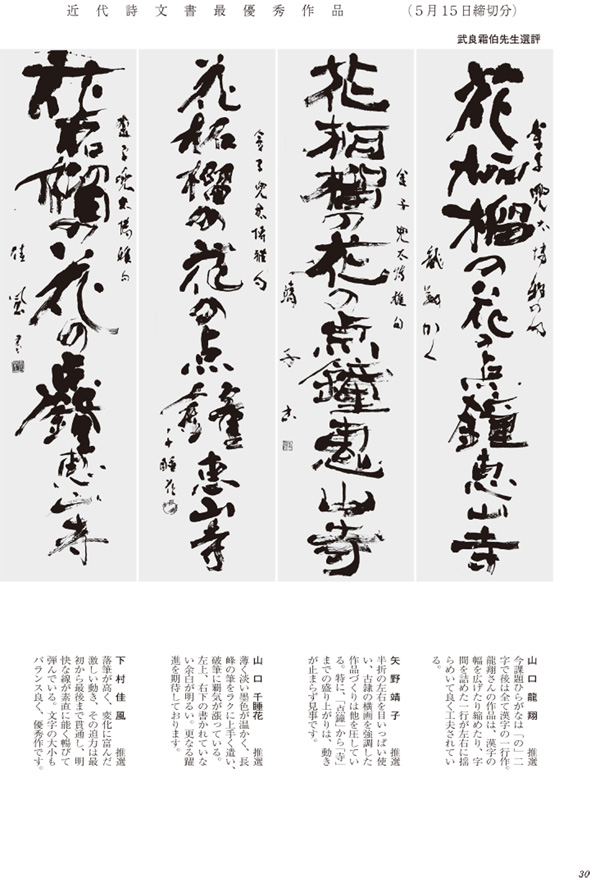 近代詩文書最優秀作品
（5月15日締切分）
武良霜伯先生選評
金子兜太博雅句
花柘榴の花の点鐘恵山寺
龍翔かく
金子兜太博雅句
花柘榴の花の点鐘恵山寺
靖子書
金子兜太博雅句
花柘榴の花の点鐘恵山寺
千睡花
金子兜太博雅句
花柘榴の花の点鐘恵山寺
佳風書
山口龍翔　推選
今課題ひらがなは「の」二
字で後は全て漢字の一行作。
龍翔さんの作品は、漢字の
幅を広げたり縮めたり、字
間を詰めた一行が左右に揺
らめいて良く工夫されてい
る。
矢野靖子　推選
半折の左右を目いっぱい使
い、古隷の横画を強調した
作品づくりは他を圧してい
る。特に、「点鐘」から「寺」
までの盛り上がりは、動き
が止まらず見事です。
山口千睡花　推選
薄く淡い墨色が温かく、長
峰の筆をラクに上手く遣い、
破筆に覇気が漲っている。
左上、右下の書かれていな
い余白が明るい。更なる躍
進を期待しております。
下村佳風　推選
落筆が高く、変化に富んだ
激しい動き、その迫力は最
初から最後まで貫通し、明
快な線が素直に能く暢びて
弾んでいる。文字の大小も
バランス良く、優秀作です。
30